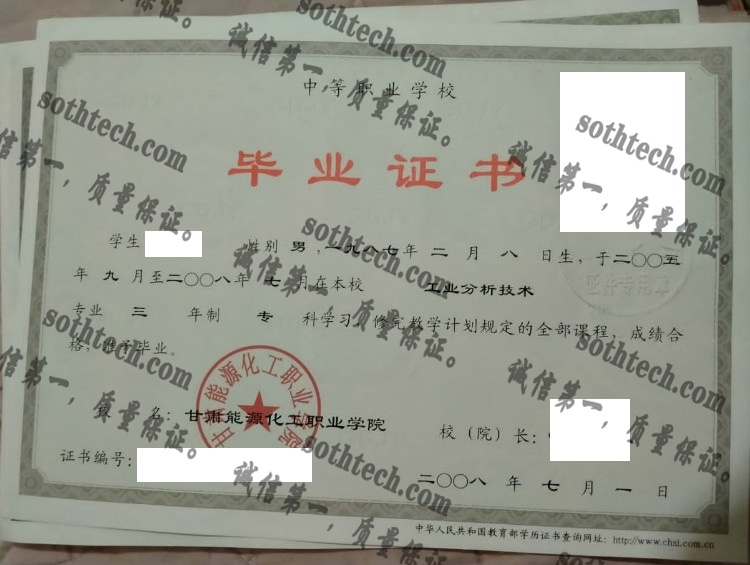 中等职业学校
毕业证书
学生 性别 男，一九八七年 二 月 八 日生，于二〇〇五
年 九 月至二〇〇八年 七 月在本校 工业分析技术
专业 三 年制 专 科学习，修完教学计划规定的全部课程，成绩合
格，准予毕业。
证件专用章
甘肃能源化工职业学院
校 名：甘肃能源化工职业学院
校（院）长：
证书编号：
二〇〇八 年 七 月 一 日
中华人民共和国教育部学历证书查询网址：http://www.chsi.com.cn
sothtech.com
诚信第一，质量保证。
sothtech.com
诚信第一，质量保证。
sothtech.com
诚信第一，质量保证。
sothtech.com
诚信第一，质量保证。
sothtech.com
诚信第一，质量保证。
sothtech.com
诚信第一，质量保证。
sothtech.com
诚信第一，质量保证。
sothtech.com
诚信第一，质量保证。